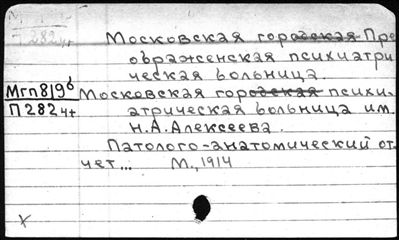 П282ч+
Московская городская Пре
ображенская психиатри
ческая больница.
Мгп8/9б Московская городская психи-
П282ч+ атрическая больница им.
Н.А.Алексеева.
Патолого-анатомический от
чет... М., 1914
X